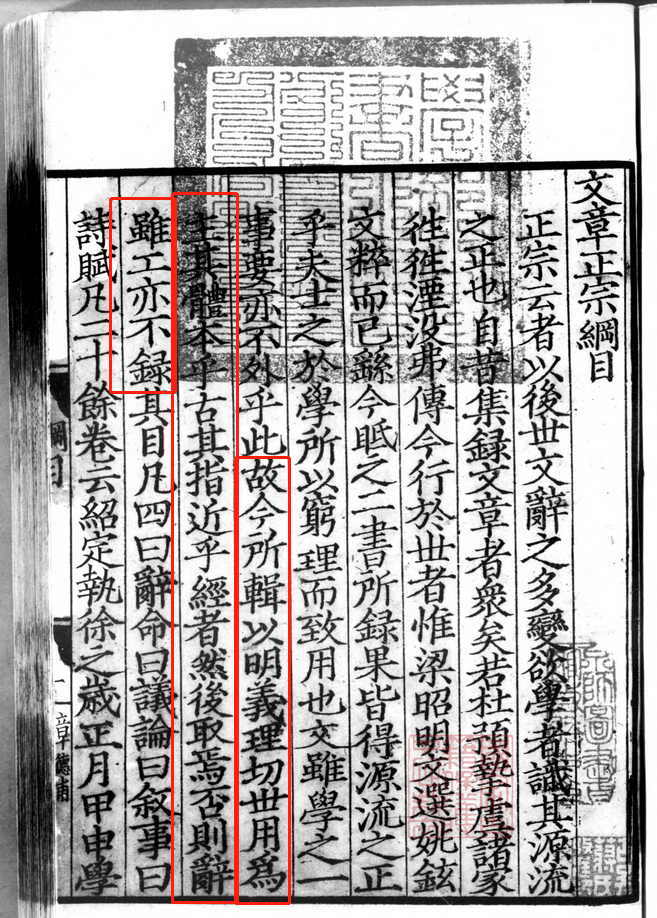 文章正宗綱目
正宗云者以後世文辭之多變欲學者識其源流
之正也自昔集録文章者衆矣若杜預摯虞諸家
徃徃湮没弗傳今行於世者惟梁昭明文選姚鉉
文粹而已繇今眡之二書所録果皆得源流之正
乎夫士之於學所以窮理而致用也文雖學之一
事要亦不外乎此故今所輯以明義理切世用爲
主其體本乎古其指近乎經者然後取焉否則辭
雖工亦不録其目凡四曰辭命曰議論曰叙事曰
詩賦凡二十餘卷云紹定執徐之歲正月甲申學
綱目
一
章德甫